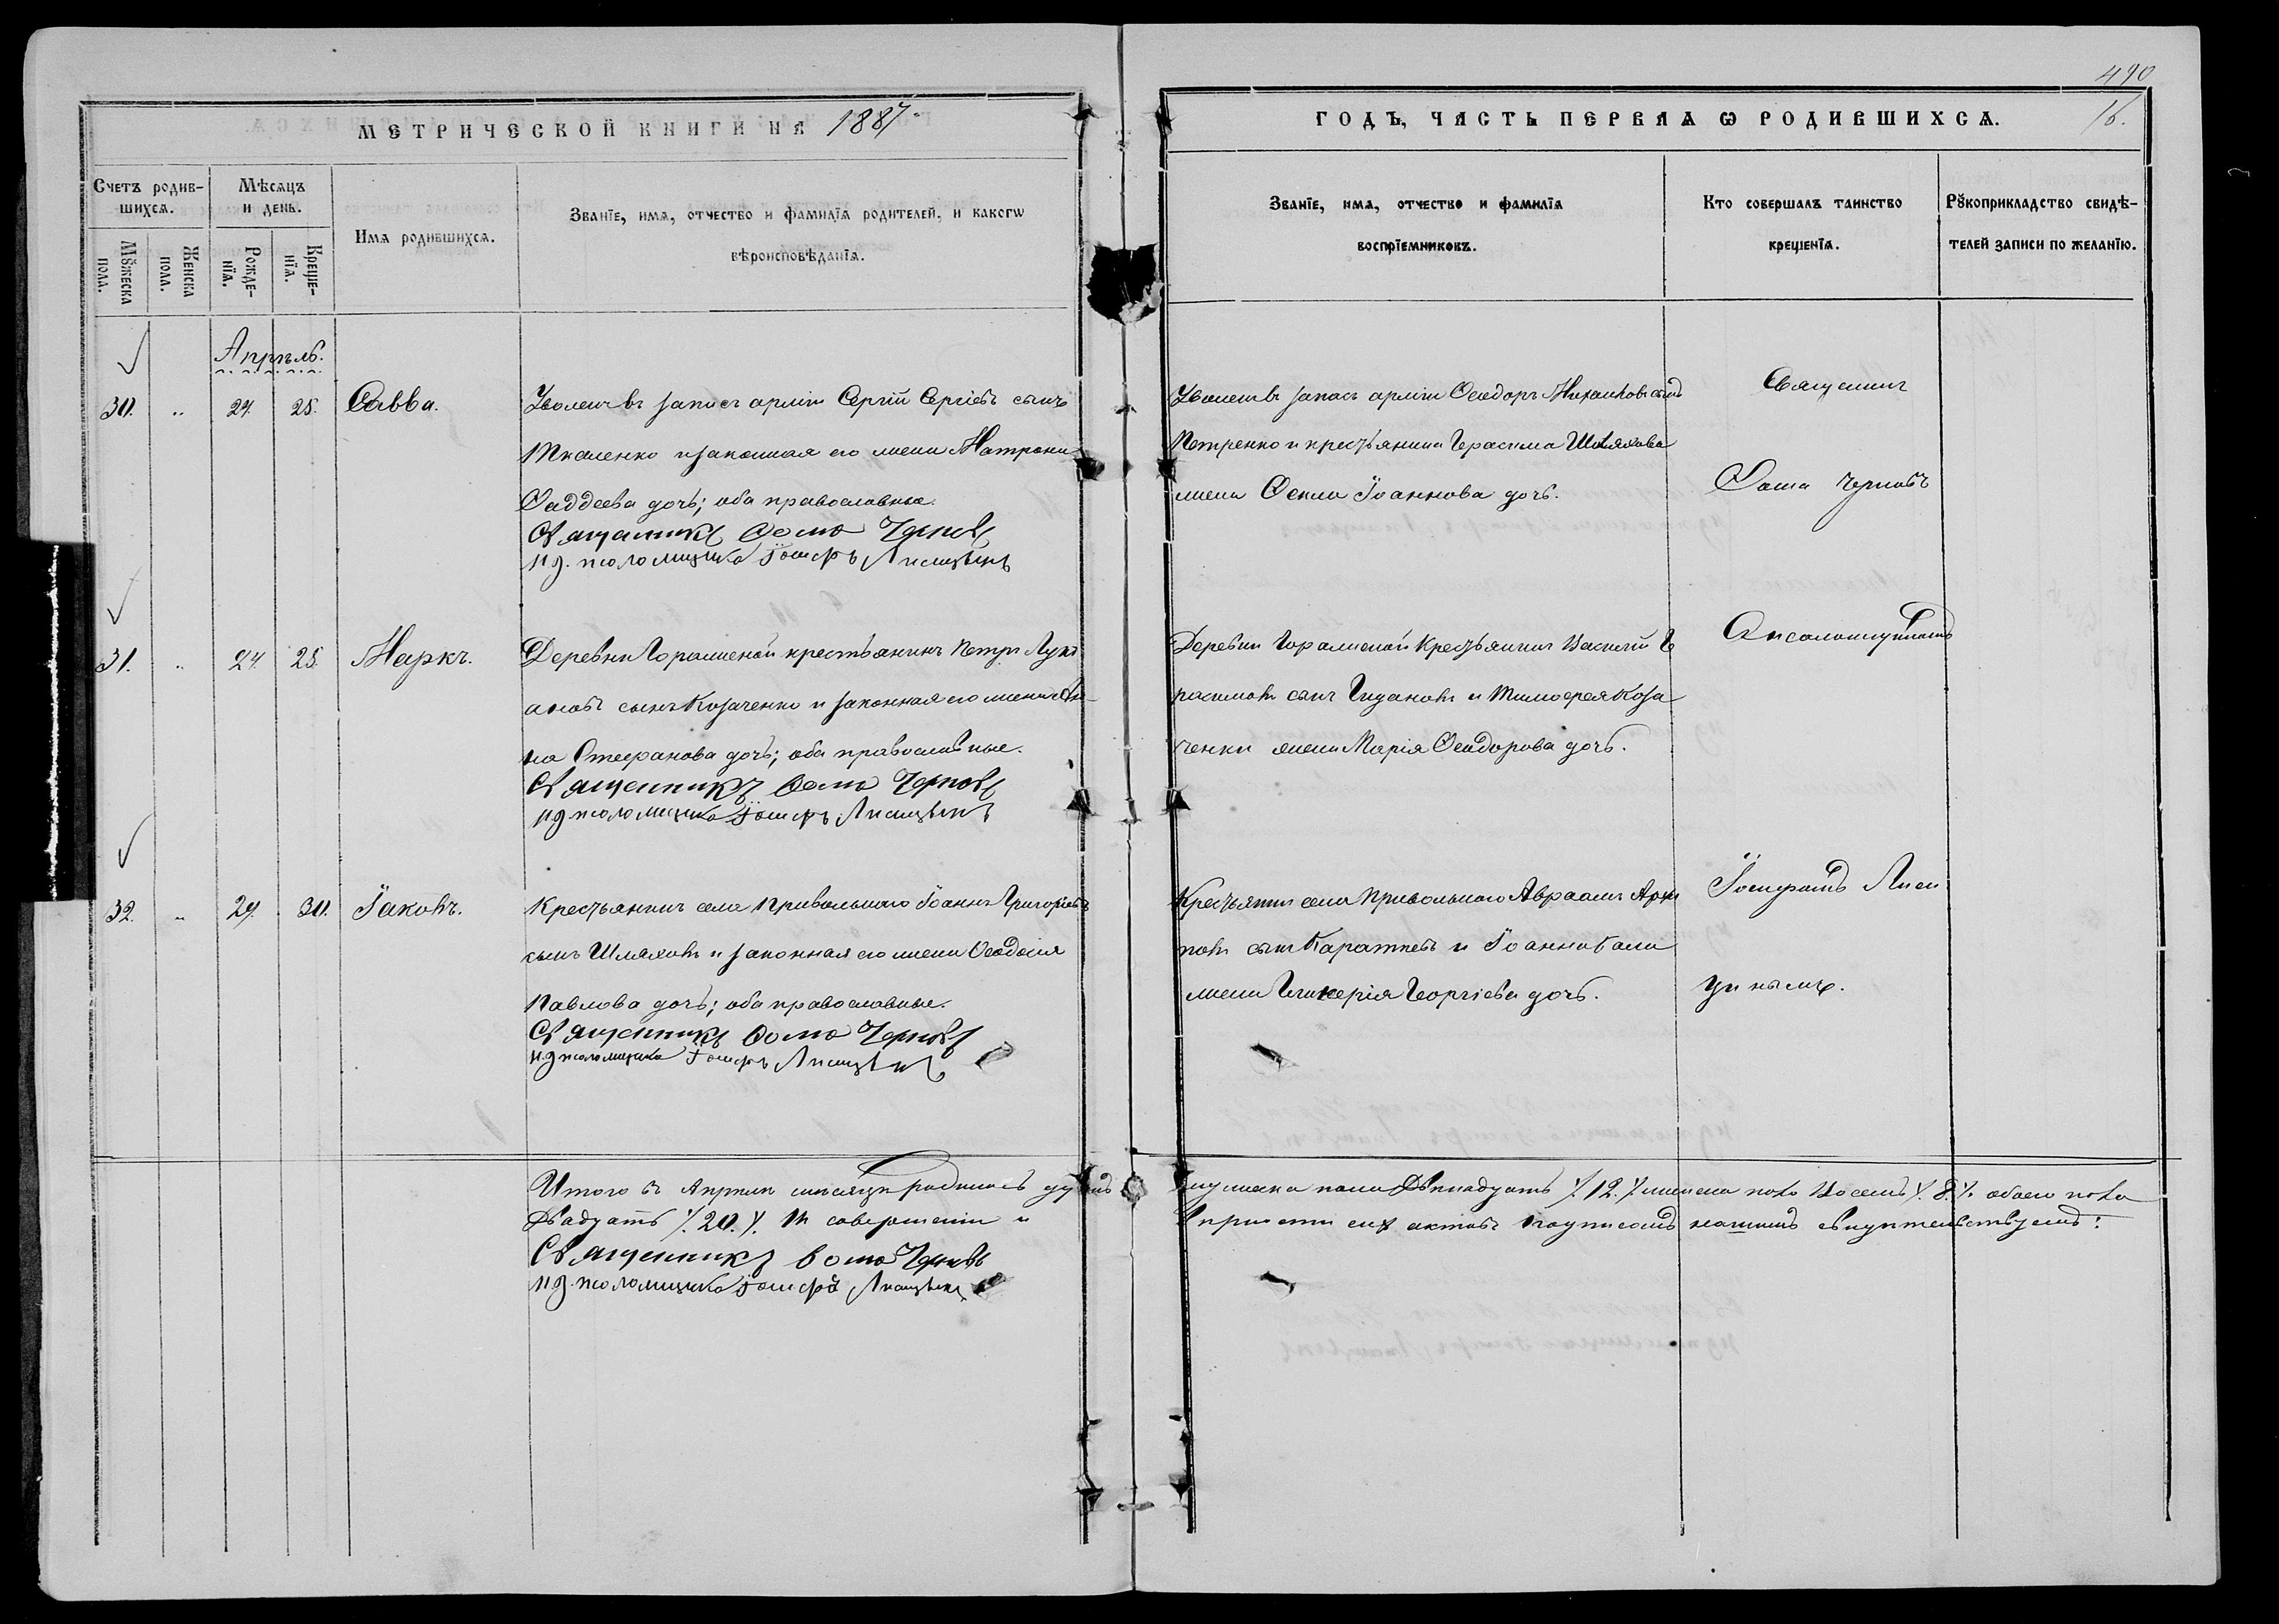 490
МЕТРИЧЕСКОЙ КНИГИ НА 1887
ГОДЪ, ЧАСТЬ ПЕРВАѦ Ѡ РОДИВШИХСѦ.
16.
Счетъ родив-
шихсѧ.
Мѣсѧцъ
и день.
Мꙋжеска
пола.
Женска
пола.
Рожде-
нїѧ.
Креще-
нїѧ.
Имѧ родившихсѧ.
Званїе, имѧ, отчество и фамилїѧ родителей, и какогѡ
вѣроисповѣданїѧ.
Званїе, имѧ, отчество и фамилїѧ
воспрїемниковъ.
Кто совершалъ таинство
крещенїѧ.
Рꙋкоприкладство свидѣ-
телей записи по желанїю.
Апрѣль.
30. " 24. 25. Савва.
Уволен въ запасъ арміи Сергій Сергіевъ сынъ
Ткаленко и законная его жена Матрона
Фаддеева дочь; оба православные.
Священникъ Ѳома Черновъ
ид. псаломщика Іосифъ Лисицынъ
Уволен въ запасъ арміи Ѳеодоръ Михаиловъ сынъ
Петренко и крестьянина Герасима Шляхова
жена Ѳекла Іоаннова дочь.
Священникъ
Ѳома Черновъ
31. " 24 25. Маркъ.
Деревни Горалиевой крестьянинъ Петръ Луки
ановъ сынъ Козаченко и законная его жена Ан-
на Стефанова дочь; оба православные.
Священникъ Ѳома Черновъ
ид псаломщика Іосифъ Лисицынъ
Деревни Горалиевой крестьянинъ Василій Ге
расимовъ сынъ Гидановъ и Тимофея Коза
ченки жена Марія Ѳеодорова дочь.
Съ псаломщикомъ
32. " 29. 30. Іаковъ.
Крестьянинъ села Привольнаго Іоаннъ Григорьевъ
сынъ Шляховъ и законная его жена Ѳеодосія
Павлова дочь; оба православные.
Священникъ Ѳома Черновъ
ид псаломщика Іосифъ Лисицынъ
Крестьянинъ села Привольнаго Авраамъ Архи
повъ сынъ Каратпевъ и Іоанна Гали
жена Гликерія Георгіева дочь.
Іосифомъ Лиси
цынымъ.
Итого въ Апрѣлѣ мѣсяцѣ родилось
мужеска пола Двѣнадцать /. 12. /. женска пола Восемь /. 8. /. обоего пола
Двадцать /. 20. /. Въ совершеніи и
актовъ подписомъ нашимъ свидѣтельствуемъ:
Священникъ Ѳома Черновъ
ид. псаломщика Іосифъ Лисицынъ